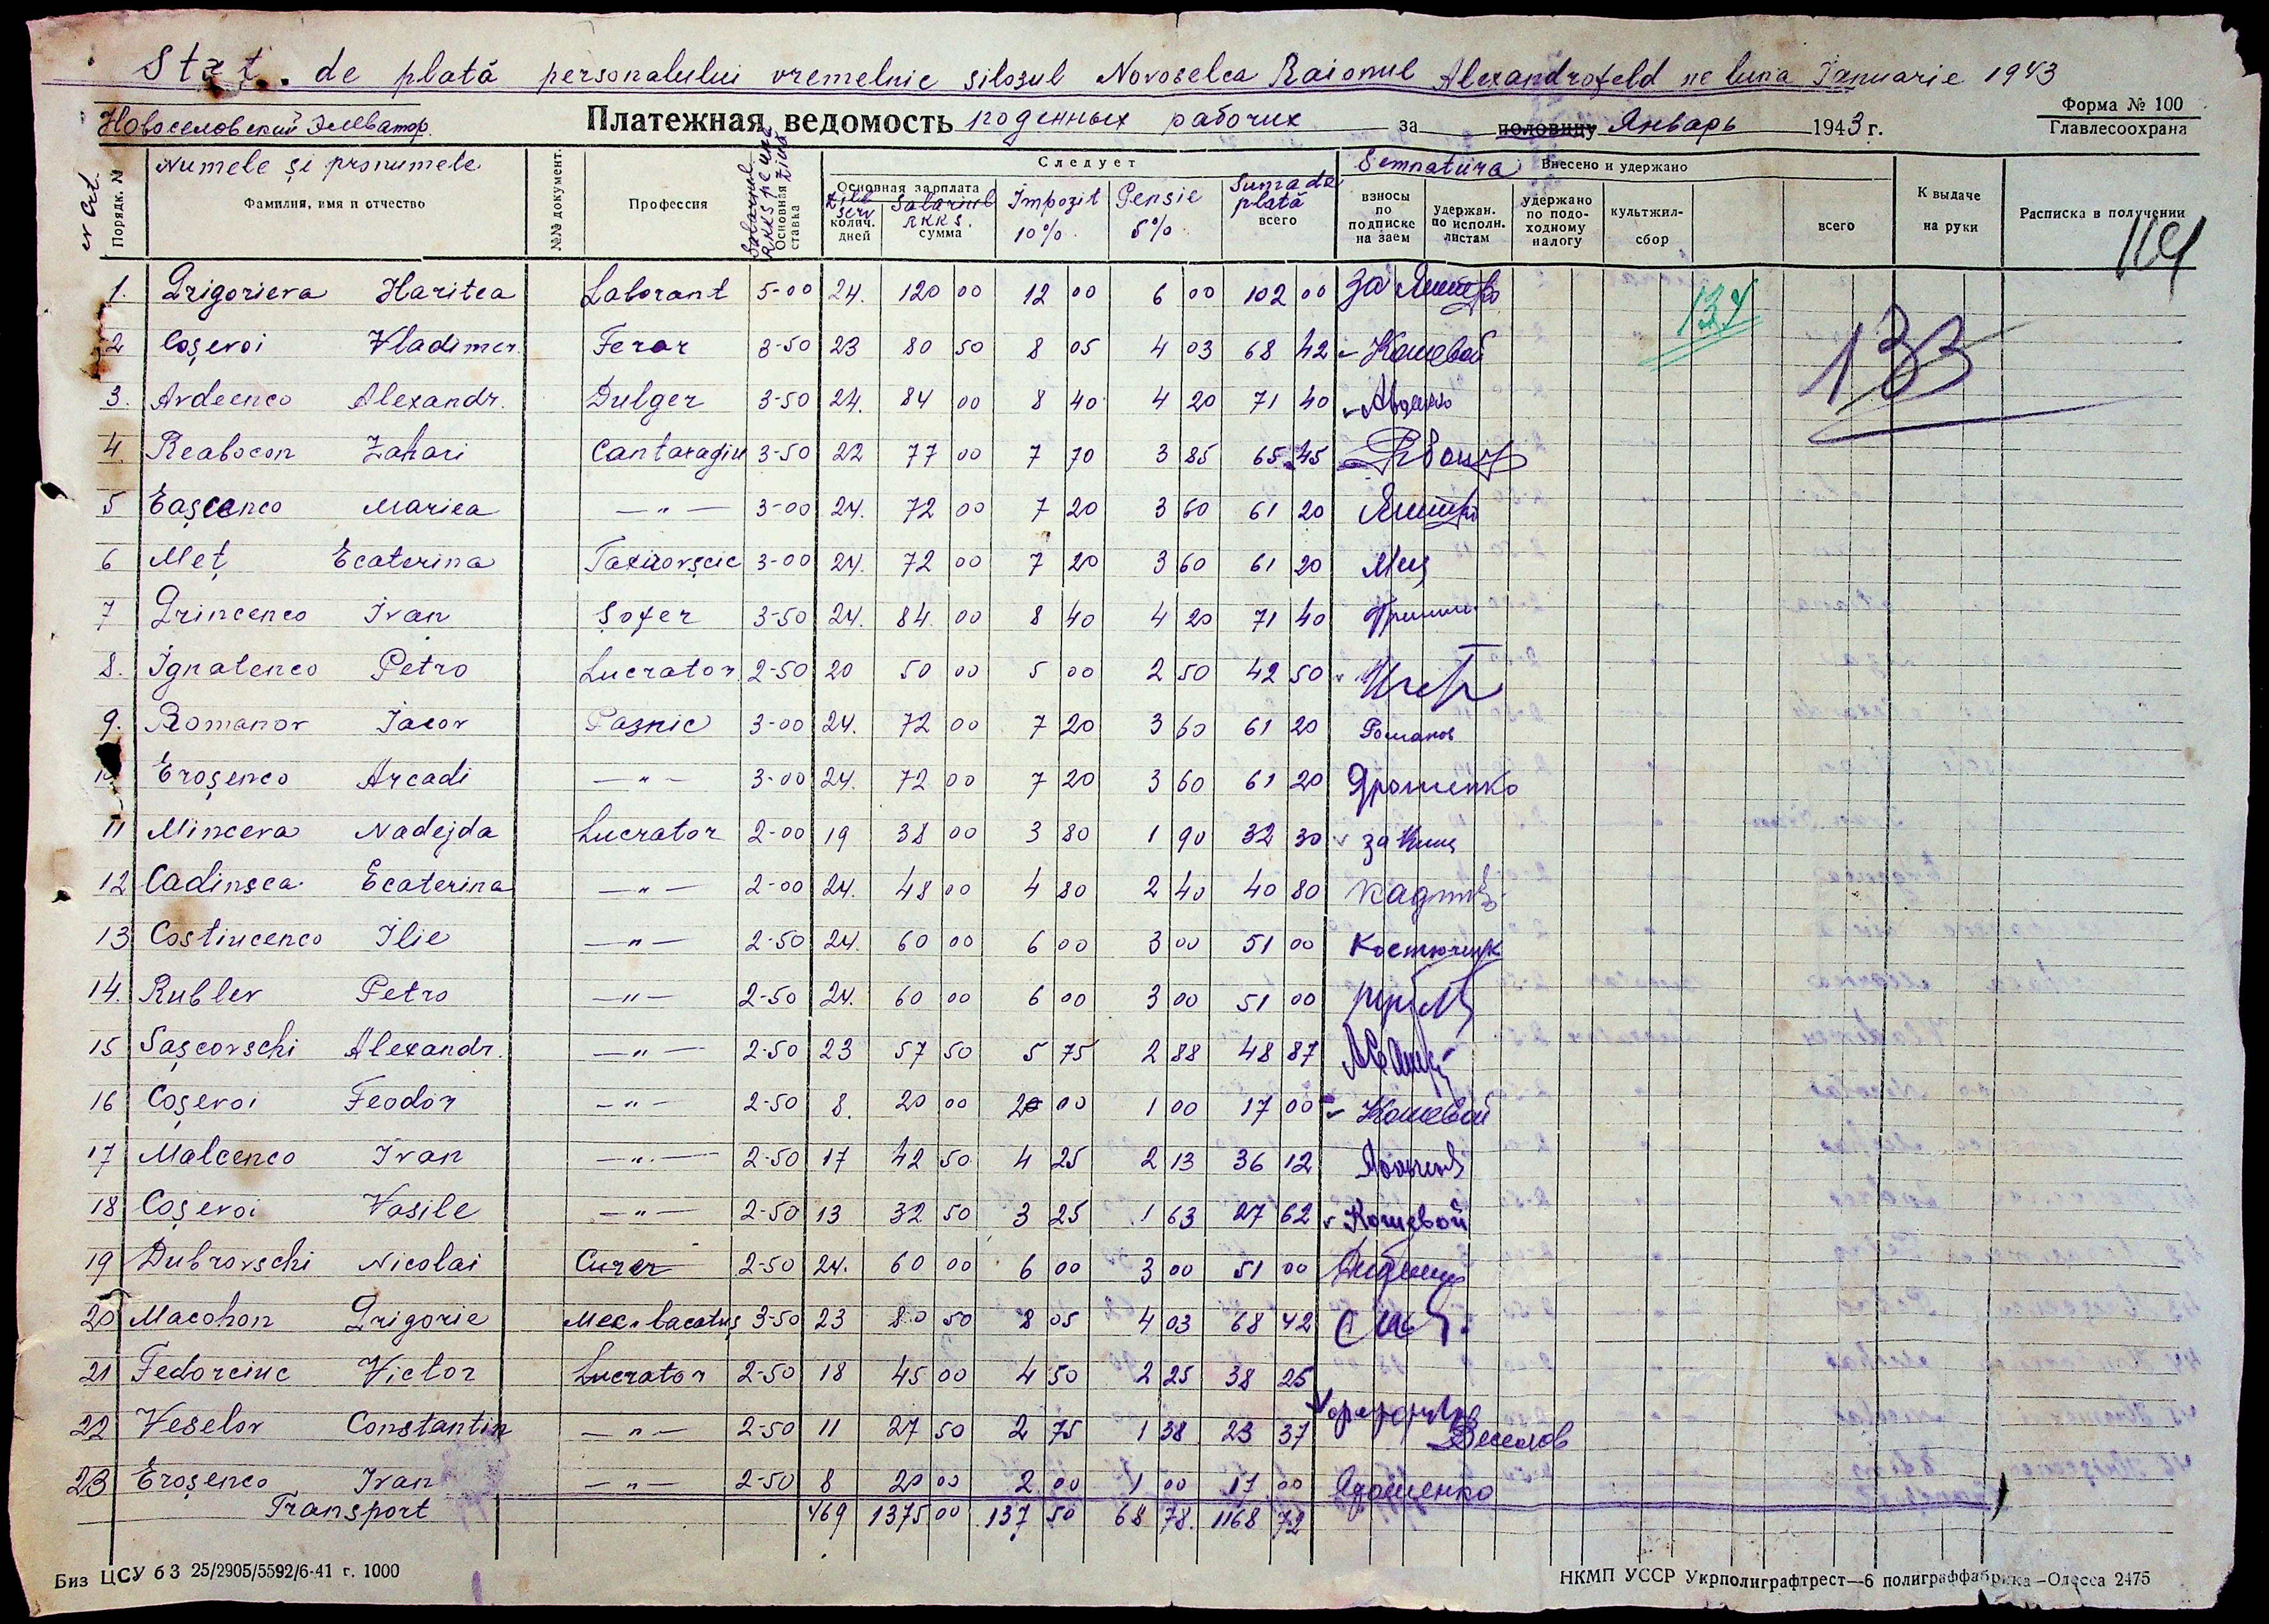 Stat. de plată personalului vremelnic silosul Novoselca Raionul Alexandrofeld pe luna Ianuarie 1943
Новоселовский Элеватор
Платежная ведомость поденных рабочих за половину Январь 1943 г.
Форма № 100
Главлесоохрана
Numele și pronumele
Фамилия, имя и отчество
Nr Crt.
Порядк. №
№№ документ.
Профессия
Salariul RKKS pe una ziuă
Основная ставка
Следует
Основная зарплата
Zile serv
колич. дней
Salariul RKKS.
сумма
Impozit 10%
Pensie 5%
Suma de plată
всего
Semnatura
Внесено и удержано
взносы по подписке на заем
удержан. по исполн. листам
удержано по подоходному налогу
культжил-сбор
всего
К выдаче на руки
Расписка в получении
114
134
133
1. Grigorieva Haritea Laborant 5-00 24. 120 00 12 00 6 00 102 00 за
2 Coșevoi Vladimer. Ferar 3-50 23 80 50 8 05 4 03 68 42 Кошевой
3. Avdeenco Alexandr. Dulger 3-50 24. 84 00 8 40 4 20 71 40
4 Reabocon Zahari Cantaragiu 3-50 22 77 00 7 70 3 85 65 45
5 Eașcenco Mariea —"— 3-00 24. 72 00 7 20 3 60 61 20
6 Meț Ecaterina 3-00 24. 72 00 7 20 3 60 61 20 Мец
7 Grincenco Ivan Șofer 3-50 24. 84 00 8 40 4 20 71 40
8. Ignatenco Petro Lucrator 2-50 20 50 00 5 00 2 50 42 50
9. Romanov Iacov Paznic 3-00 24. 72 00 7 20 3 60 61 20 Романов
10 Eroșenco Arcadi —"— 3-00 24. 72 00 7 20 3 60 61 20 Ярошенко
11 Minceva Nadejda Lucrator 2-00 19 38 00 3 80 1 90 32 30 за
12 Cadinsca Ecaterina —"— 2-00 24. 48 00 4 80 2 40 40 80
13 Costiucenco Ilie —"— 2-50 24. 60 00 6 00 3 00 51 00
14. Rublev Petro —"— 2-50 24. 60 00 6 00 3 00 51 00
15 Sașcovschi Alexandr. —"— 2-50 23 57 50 5 75 2 88 48 87
16 Coșevoi Feodor —"— 2-50 8. 20 00 2 00 1 00 17 00 Кошевой
17 Malcenco Ivan —"— 2-50 17 42 50 4 25 2 13 36 12
18 Coșevoi Vasile —"— 2-50 13 32 50 3 25 1 63 27 62 Кошевой
19 Dubrovschi Nicolai Curer 2-50 24. 60 00 6 00 3 00 51 00
20 Macohon Grigorie 3-50 23 80 50 8 05 4 03 68 42
21 Fedorciuc Victor Lucrator 2-50 18 45 00 4 50 2 25 38 25
22 Veselov Constantin —"— 2-50 11 27 50 2 75 1 38 23 37 Веселов
23 Eroșenco Ivan —"— 2-50 8 20 00 2 00 1 00 17 00
Transport 469 1375 00 137 50 68 78. 1168 72
Биз ЦСУ 63 25/2905/5592/6-41 г. 1000
НКМП УССР Укрполиграфтрест—6 полиграффабрика—Одесса 2475